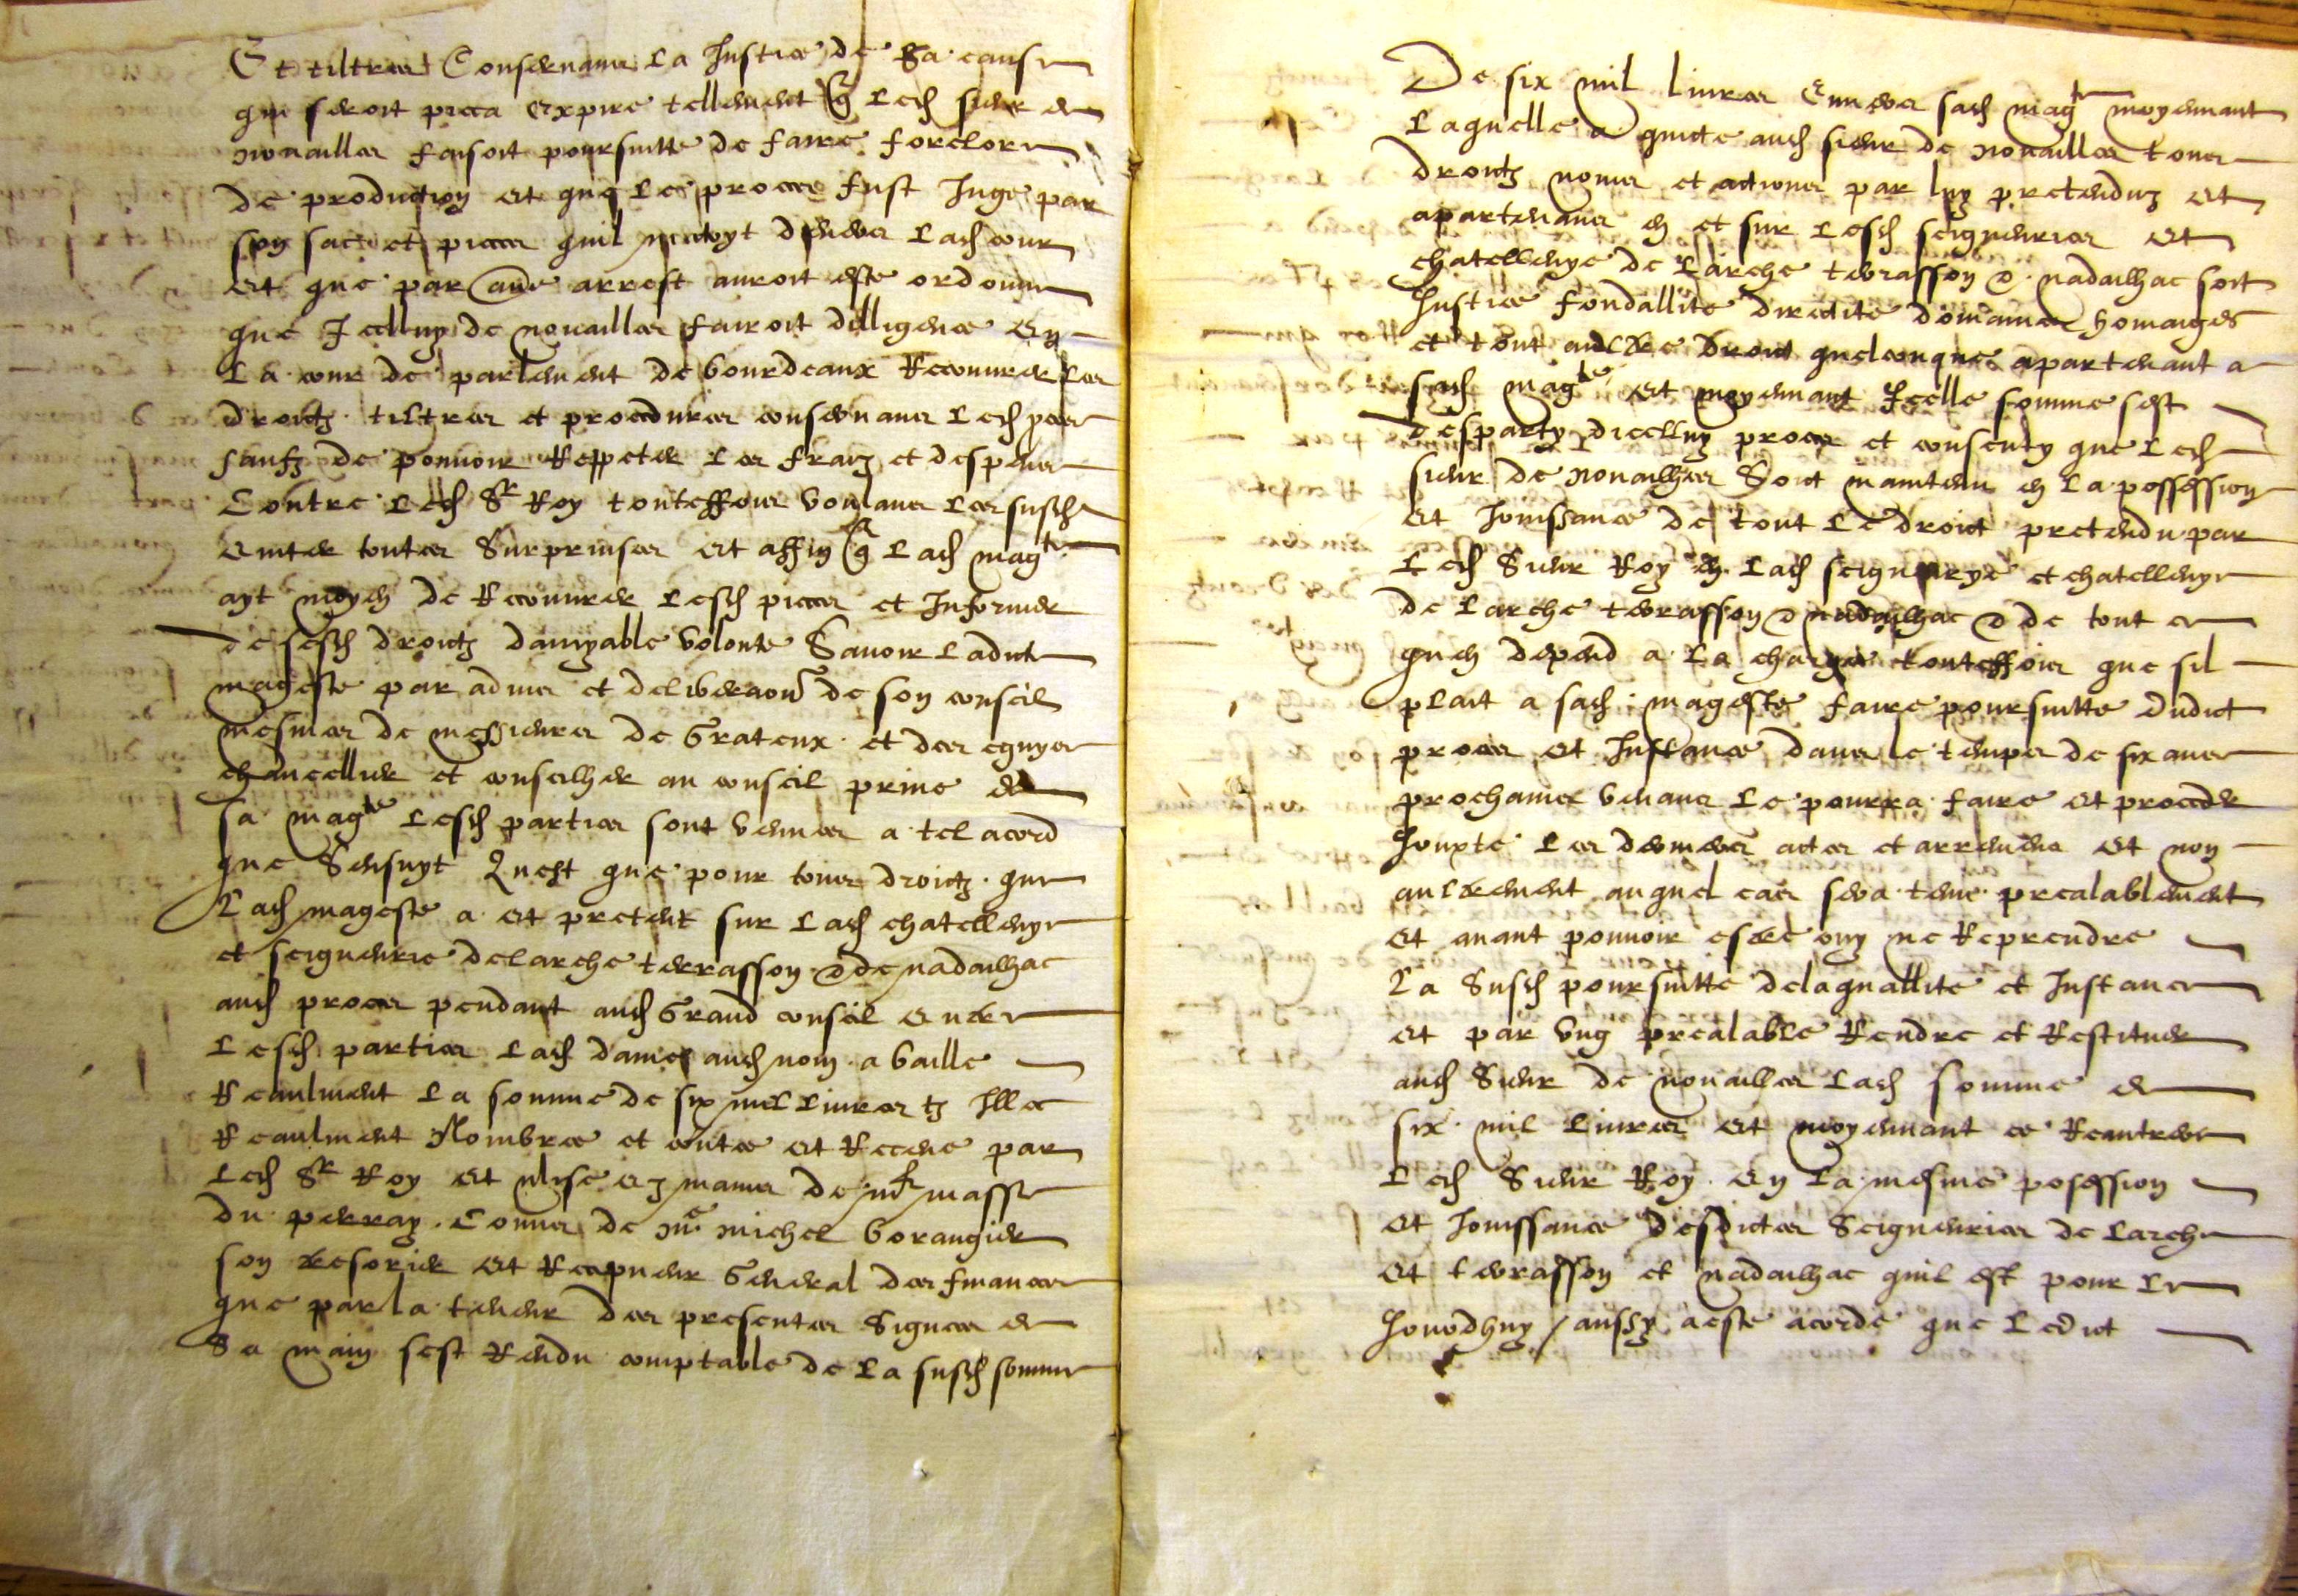 Et tiltres Conservans la Justice de Sa cause
qui seroit expire tellement q led sieur de
nouailles faisoit poursuitte de faire forclore
de production et que le proces fust Juge par
son sac et pieces quil devers lad cour
et que par arrest auroit este ordonne
que Icelluy de nouailles fairoit dilligence en
la cour de parlement de bourdeaux Recouvrer les
droictz tiltres et procedures conservans led
saufz de pouvoir Reppeter les fraiz et despens
Contre led Sr Roy touteffois voulans les susd
eviter toutes Surprinses et affin q lad magte
ayt moyen de Recouvrer lesd pieces et Informer
de sesd droictz damyable volonte Savoir ladicte
mageste par advis et deliberaon de son conseil
mesmes de messieurs de Grateux et des eguyes
chancellier et conseilher au conseil prive de
sa magte lesd parties sont venues a tel acord
que Sensuyt Quest que pour tous droictz que
Lad mageste a et pretent sur lad chatellenye
et seigneurie delarche terrasson & de nadailhac
aud proces pendant aud Grand conseil entre
lesd parties lad dame aud nom a baille
Reaulment la somme de six mil livres tz Illec
Reaulment Nombree et contee et Receue par
led Sr Roy et mise ez mains de masse
du perray Comis de Me michel borangier
son tresorier et Recepveur General des finances
que par la teneur des presentes Signees de
Sa main sest Rendu comptable de la susd somme
De six mil livres Envers sad magte moyennant
Laquelle a quicte aud sieur de nouailles tous
droictz noms et actions par luy pretenduz et
apartenans en et sur lesd seigneuries et
chatellenye de Larche terrasson & nadailhac soit
Justice fondallite directite domaines homaiges
et tout aultre droict quelconque apartenant a
sad magte et moyennant Icelle somme sest
desparty dicelluy proces et consenty que led
sieur de nouailhes Soict maintenu en la possession
et Jouissance de tout le droict pretendu par
led Sieur Roy en lad seigneurye et chatellenye
de larche terrasson & nadailhac & de tout ce
quen depend a la charge touteffois que sil
plait a sad mageste faire poursuitte dudict
proces et Instance dans le temps de six ans
prochames venans le pourra faire et proceder
Jouxte les derniers actes et arremens et non
aultrement auquel cas sera tenue prealablement
et avant pouvoir estre ouy ne Reprendre
La Susd poursuitte delaquallite et Instance
et par ung prealable Rendre et Restituer
aud Sieur de nouailles lad somme de
six mil livres et moyennant ce Reantrer
led Sieur Roy en la mesme posession
et Jouissance desdictes Seigneuries de larche
et terrasson et nadailhac quil est pour le
Jourdhuy / aussy aeste acorde que ledict